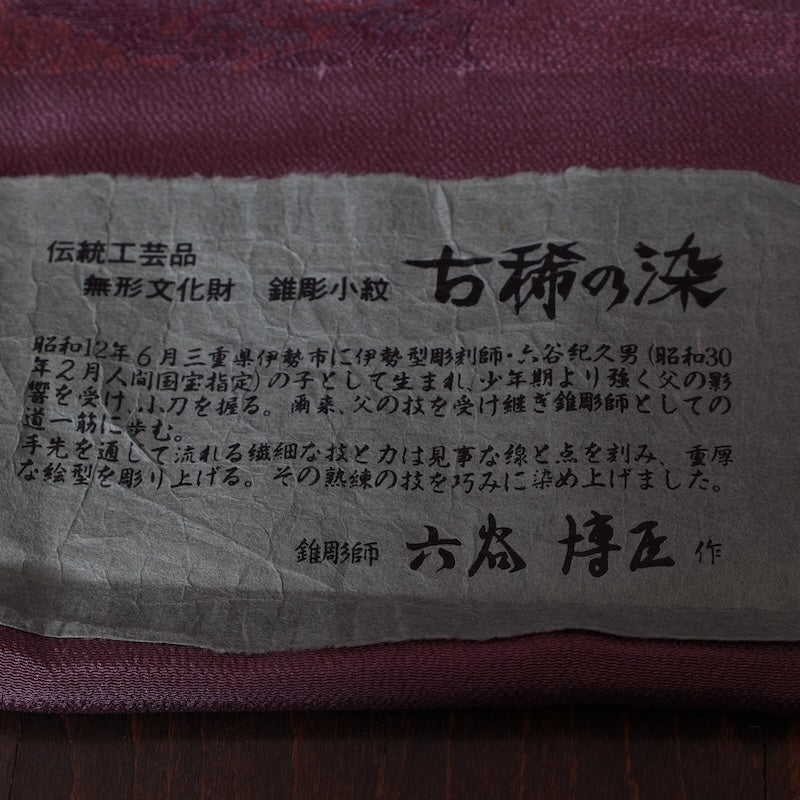 伝統工芸品
無形文化財 錐彫小紋 古稀の染
昭和12年6月三重県伊勢市に伊勢型彫刻師・六谷紀久男(昭和30
年2月人間国宝指定)の子として生まれ、少年期より強く父の影
響を受け、小刀を握る。爾来、父の技を受け継ぎ錐彫師としての
道一筋に歩む。
手先を通して流れる繊細な技と力は見事な線と点を刻み、重厚
な絵型を彫り上げる。その熟練の技を巧みに染め上げました。
錐彫師 六谷博正 作